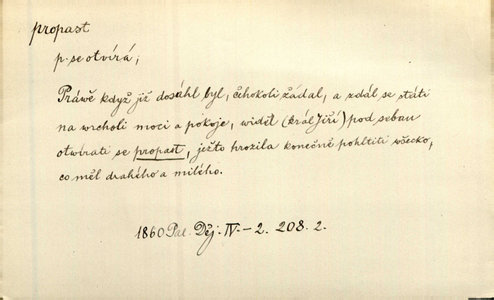 propast
p. se otvírá,
Práwě když již dosáhl byl, čehokoli žádal, a zdál se státi
na wrcholi moci a pokoje, widěl (král Jiří) pod sebau
otwírati se propast, ježto hrozila konečně pohltiti všecko,
co měl drahého a milého.
1860 Pal. Děj. IV-2. 208. 2.